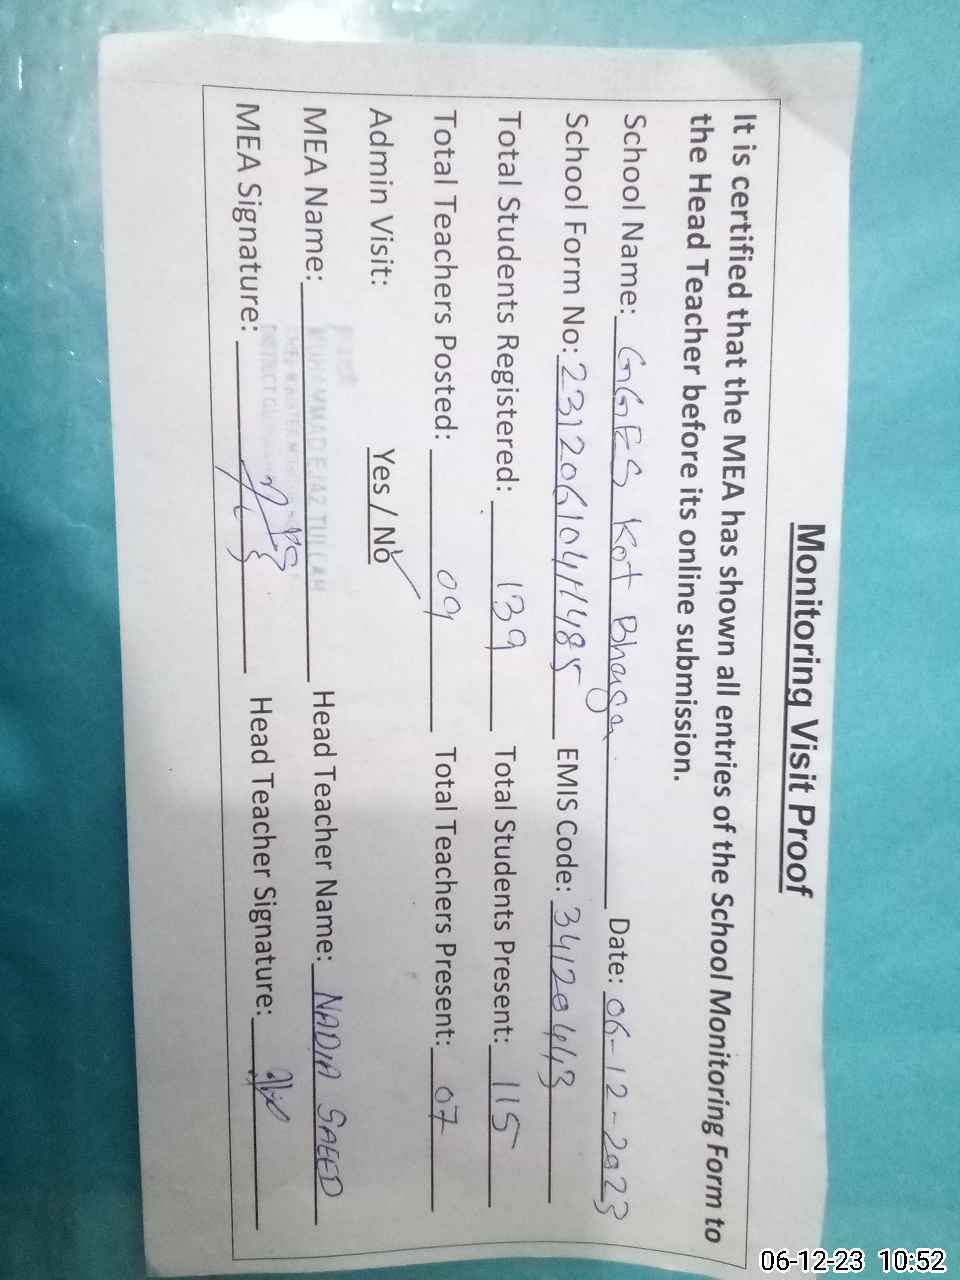 Monitoring Visit Proof
It is certified that the MEA has shown all entries of the School Monitoring Form to
the Head Teacher before its online submission.
School Name: GGES Kot Bhaga Date: 06-12-2023
School Form No: EMIS Code: 34120443
Total Students Registered: 139 Total Students Present: 115
Total Teachers Posted: 09 Total Teachers Present: 07
Admin Visit: Yes / No
MEA Name: MUHAMMAD EJAZ Head Teacher Name: NADIA SAEED
MEA Signature: Head Teacher Signature:
06-12-23 10:52